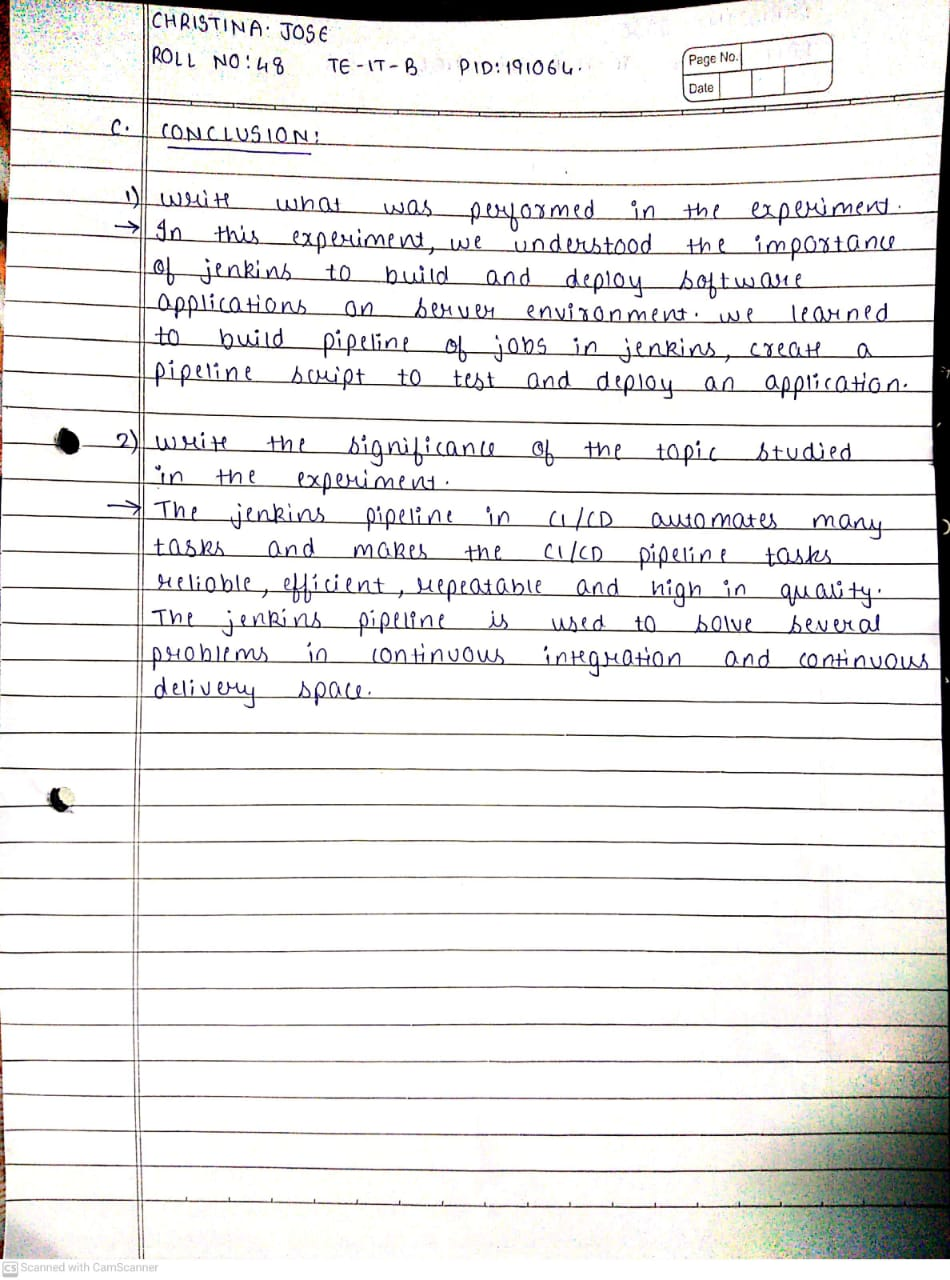 CHRISTINA. JOSE
ROLL NO:48 TE-IT-B PID:191064.
Page No.
Date
C. CONCLUSION:
1) Write what was performed in the experiment.
→ In this experiment, we understood the importance
of jenkins to build and deploy software
applications on server environment. we learned
to build pipeline of jobs in jenkins, create a
pipeline script to test and deploy an application.
2) Write the significance of the topic studied
in the experiment.
→ The jenkins pipeline in CI/CD automates many
tasks and makes the CI/CD pipeline tasks
reliable, efficient, repeatable and high in quality.
The jenkins pipeline is used to solve several
problems in continuous integration and continuous
delivery space.
CS Scanned with CamScanner